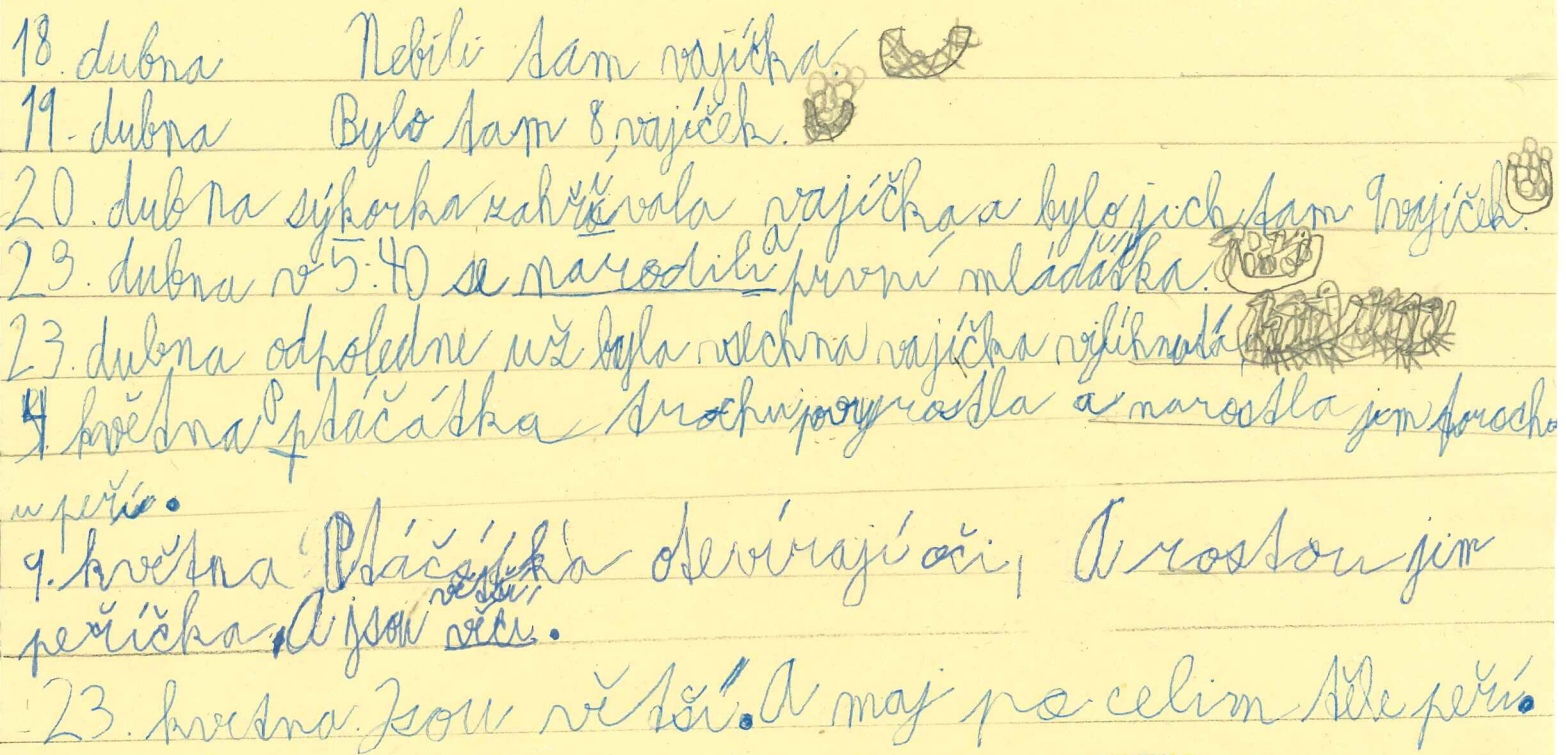 18. dubna Nebili tam vajíčka.
19. dubna Bylo tam 8, vajíček.
20. dubna sýkorka zahřívala vajíčka a bylo jich tam 9 vajíček.
23. dubna v 5:40 se narodila první mláďátka.
23. dubna odpoledne už byla vsechna vajíčka vjlíhnutá
4. května Ptáčátka trochu povyrostla a narostla jim troch
u peří.
9. května Ptáčátka otevírají oči, A rostou jim
peříčka, A jsou větší.
23. kvetna. Jsou větší. A maj po celim těle peří.